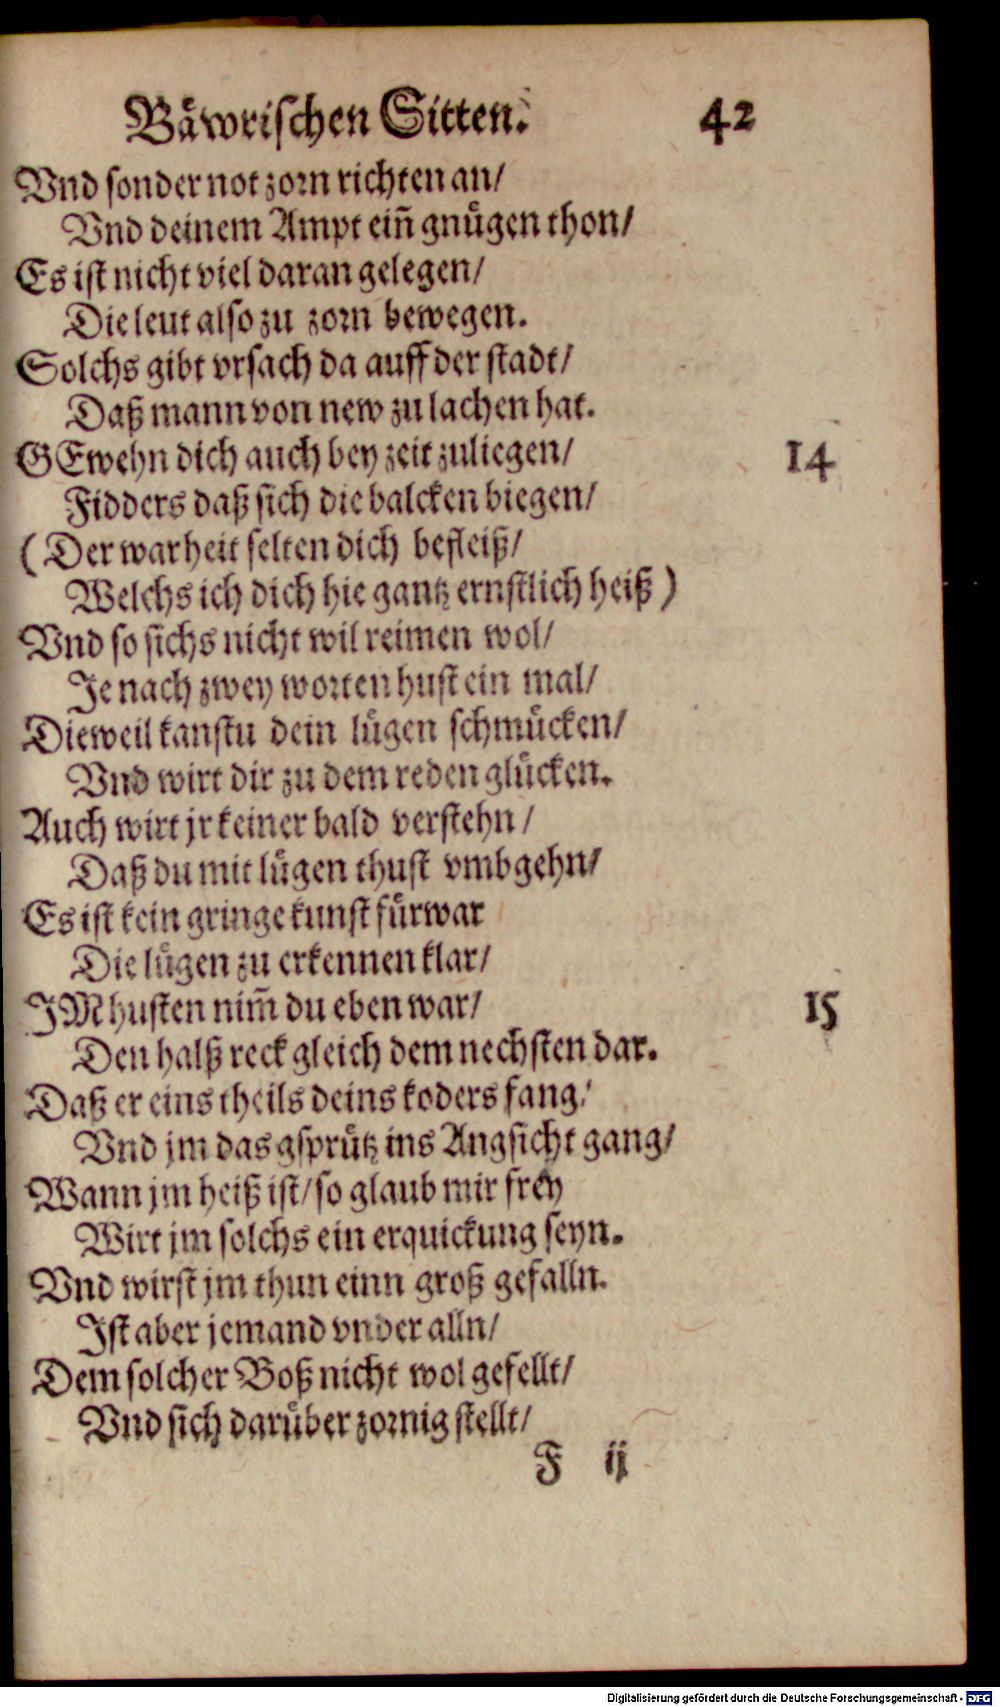 Bäwrischen Sitten. 42
Vnd sonder not zorn richten an/
Vnd deinem Ampt eiñ gnügen thon/
Es ist nicht viel daran gelegen/
Die leut also zu zorn bewegen.
Solchs gibt vrsach da auff der stadt/
Daß mann von new zu lachen hat.
GEwehn dich auch bey zeit zuliegen/ 14
Fidders daß sich die balcken biegen/
(Der warheit selten dich befleiß/
Welchs ich dich hie gantz ernstlich heiß)
Vnd so sichs nicht wil reimen wol/
Je nach zwey worten hust ein mal/
Dieweil kanstu dein lügen schmücken/
Vnd wirt dir zu dem reden glücken.
Auch wirt jr keiner bald verstehn/
Daß du mit lügen thust vmbgehn/
Es ist kein gringe kunst fürwar
Die lügen zu erkennen klar/
JM husten nim̃ du eben war/ 15
Den halß reck gleich dem nechsten dar.
Daß er eins theils deins koders fang/
Vnd jm das gsprütz ins Angsicht gang/
Wann jm heiß ist/ so glaub mir frey
Wirt jm solchs ein erquickung seyn.
Vnd wirst jm thun einn groß gefalln.
Ist aber jemand vnder alln/
Dem solcher Boß nicht wol gefellt/
Vnd sich darüber zornig stellt/
F ij
Digitalisierung gefördert durch die Deutsche Forschungsgemeinschaft - DFG